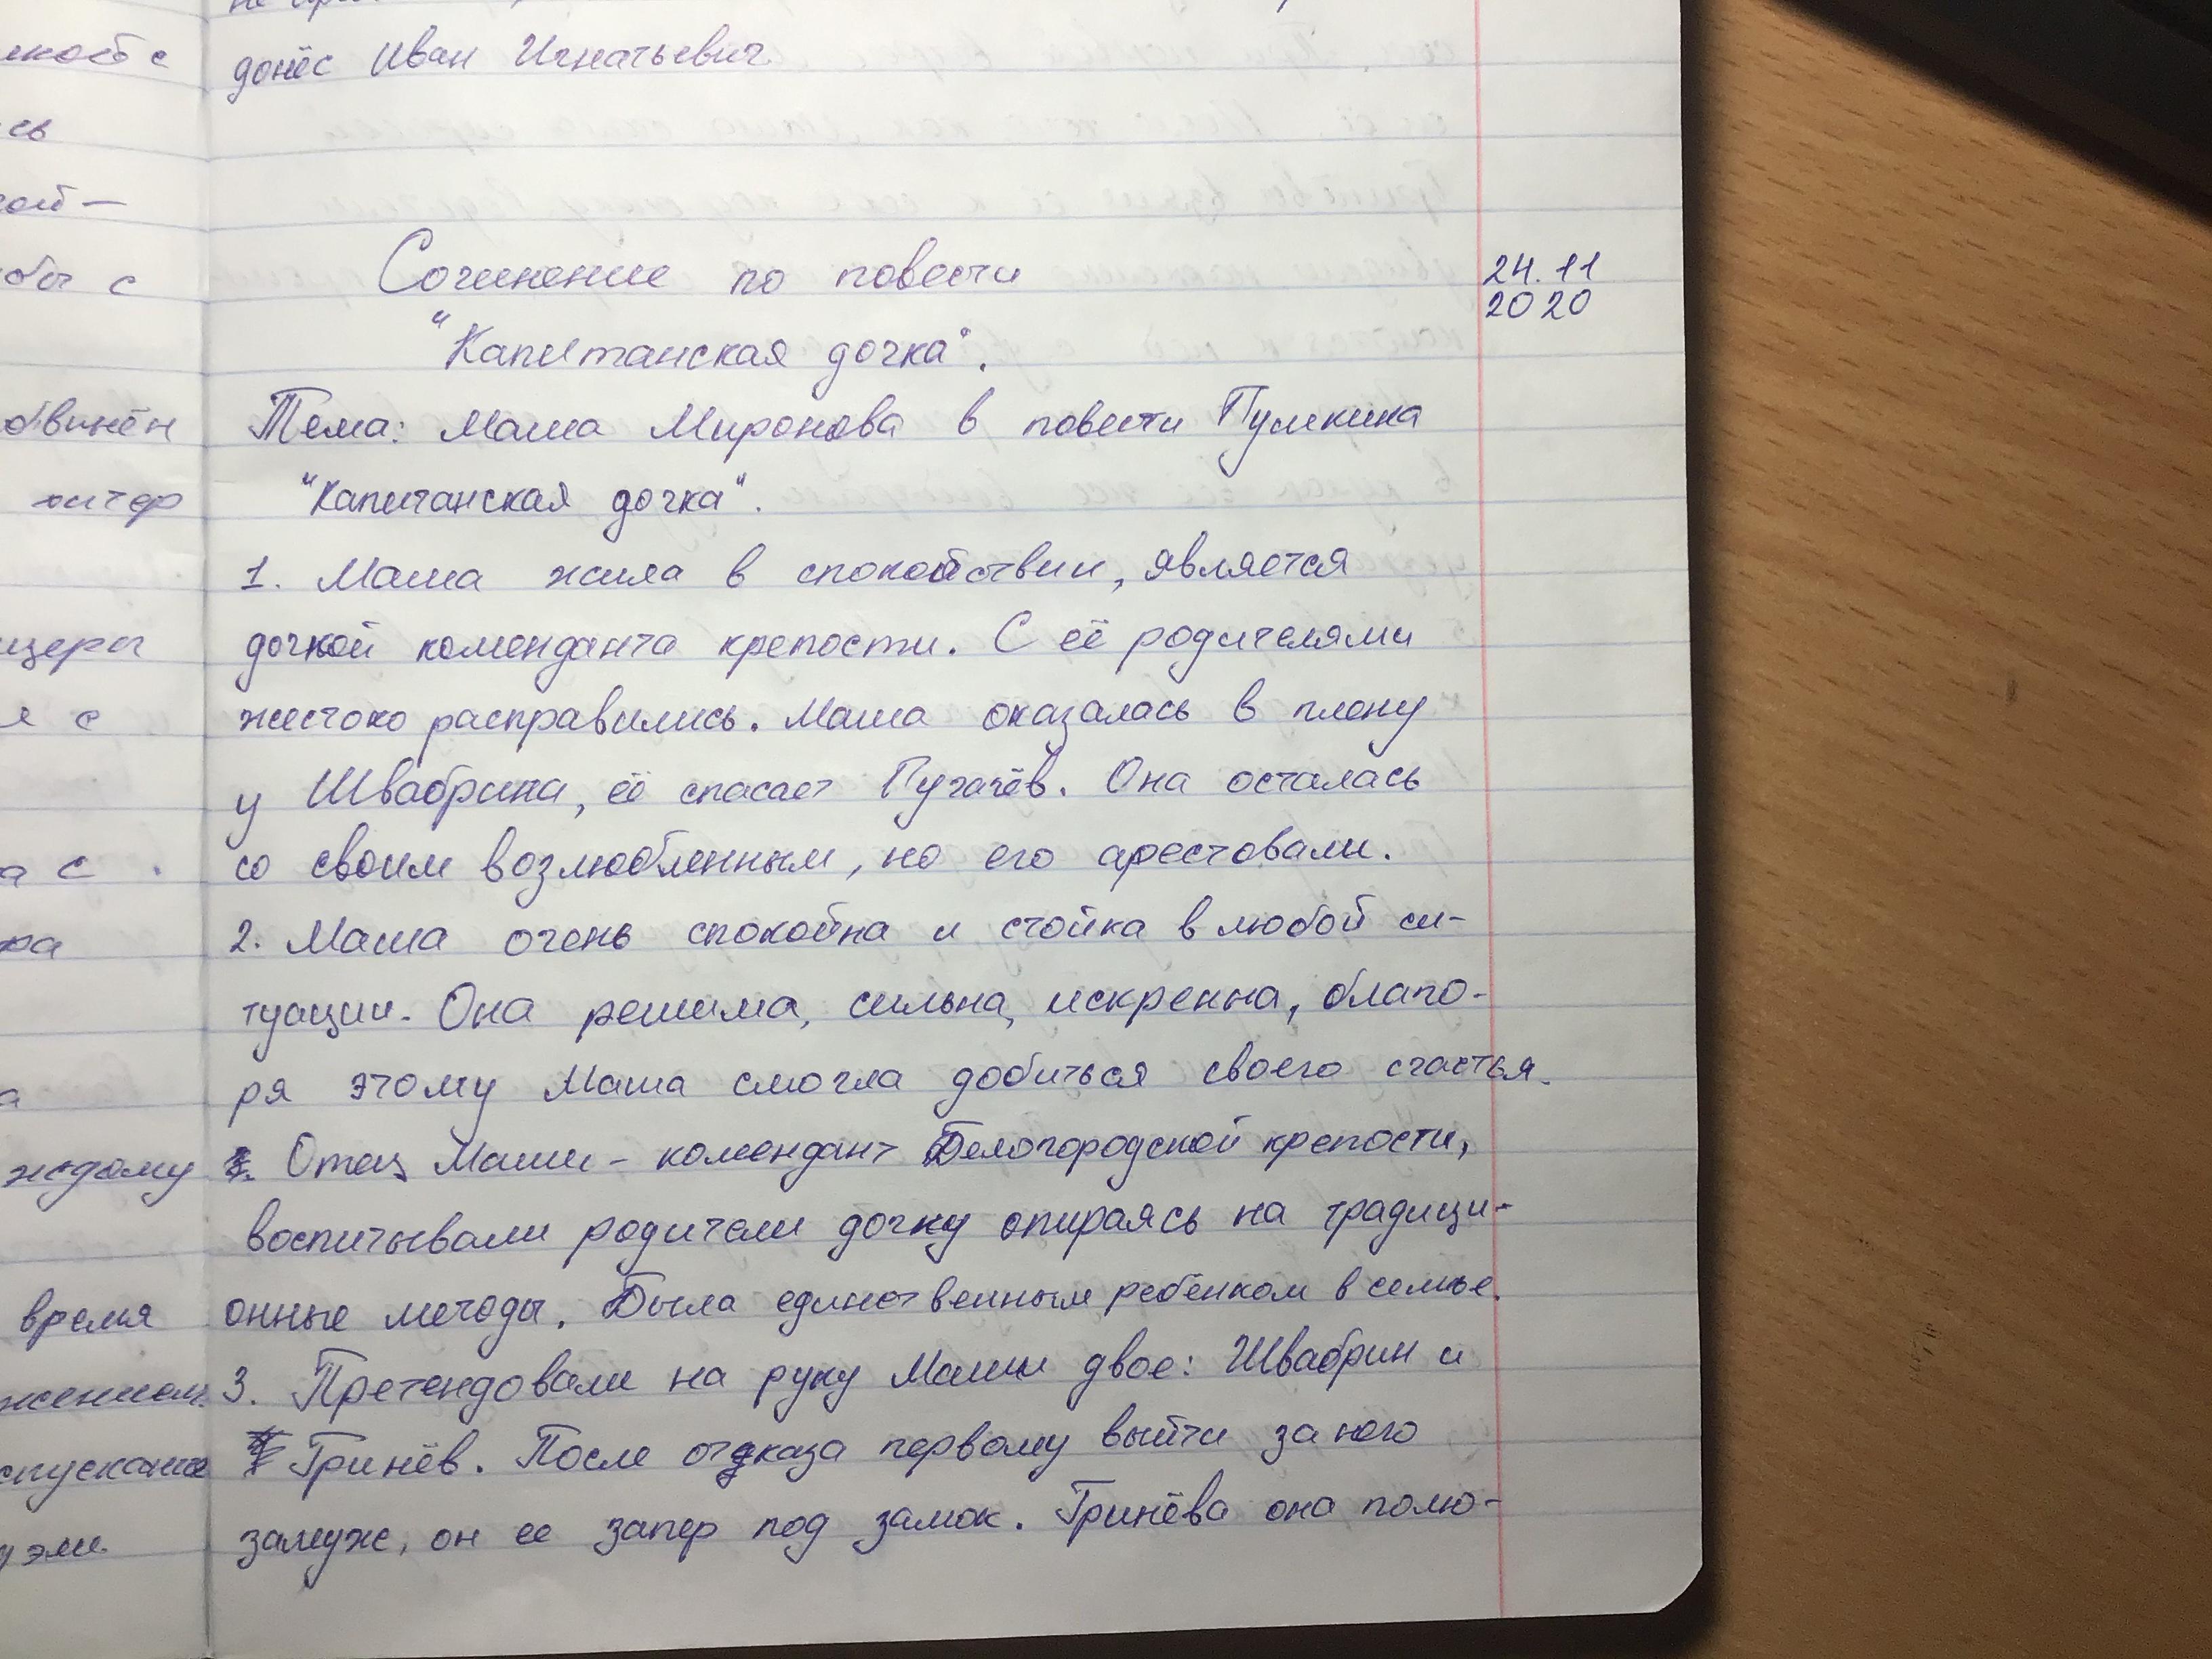 донёс Иван Игнатьевич.
Сочинение по повести
"Капитанская дочка".
24.11
2020
Тема: Маша Миронова в повести Пушкина
"Капитанская дочка".
1. Маша жила в спокойствии, является
дочкой коменданта крепости. С её родителями
жестоко расправились. Маша оказалась в плену
у Швабрина, её спасает Пугачёв. Она осталась
со своим возлюбленным, но его арестовали.
2. Маша очень спокойна и стойка в любой си-
туации. Она решима, сильна, искренна, благо-
ря этому Маша смогла добиться своего счастья.
Отец Маши - комендант Белогородской крепости,
воспитывали родители дочку опираясь на традици-
онные методы. Была единственным ребёнком в семье.
3. Претендовали на руку Маши двое: Швабрин и
Гринёв. После отказа первому выйти за него
замуж, он ее запер под замок. Гринёва она полю-
сь
ой-
с
обвинён
хитер
я с
а с
ра
а
ждому
время